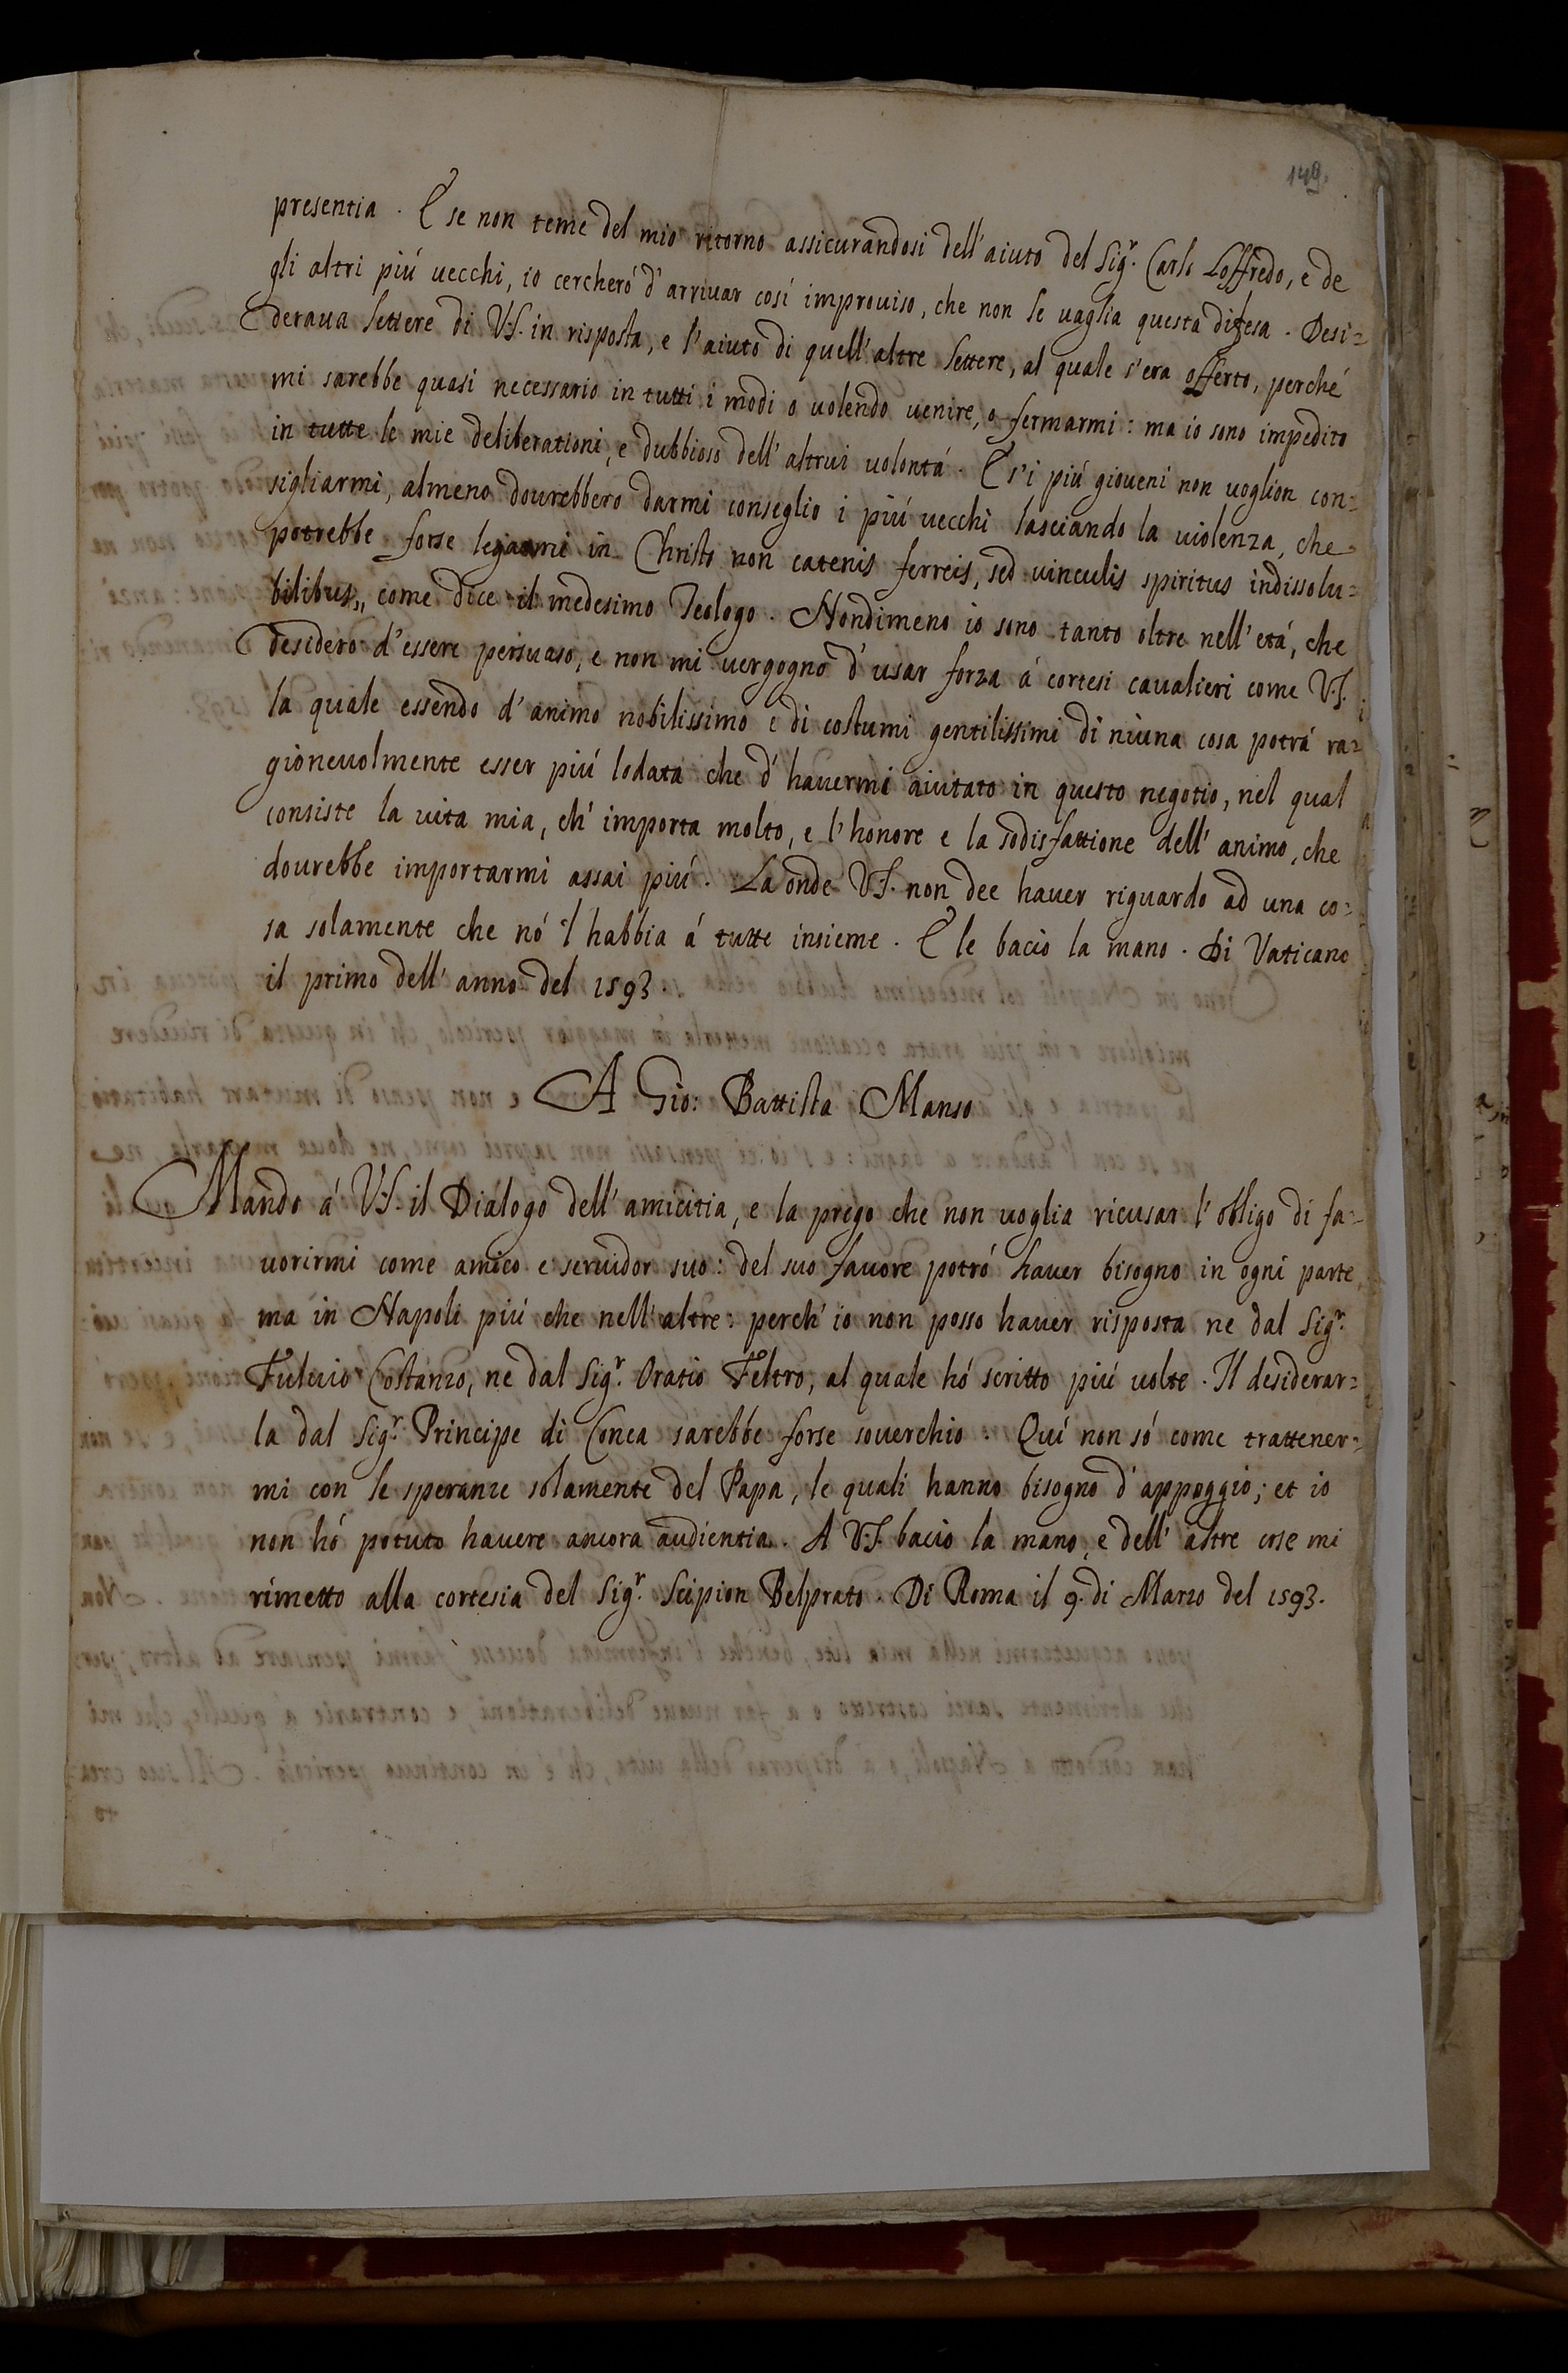 149.
presentia. E se non teme del mio ritorno assicurandosi dell'aiuto del Sig.r Carlo Loffredo, e de
gli altri piú uecchi, io cercheró d'arriuar cosí improuiso, che non le uaglia questa difesa. Desi=
deraua lettere di V.S. in risposta, e l'aiuto di quell'altre lettere, al quale s'era offerto, perché
mi sarebbe quasi necessario in tutti i modi o uolendo uenire, o fermarmi: ma io sono impedito
in tutte le mie deliberationi, e dubbioso dell'altrui uolontá. E s'i piú gioueni non uoglion con=
sigliarmi, almeno dourebbero darmi conseglio i piú uecchi lasciando la uiolenza, che
potrebbe forse legarmi in Christo non catenis ferreis, sed uinculis spiritus indissolu=
bilibus,, come dice il medesimo Teologo. Nondimeno io sono tanto oltre nell'etá, che
desidero d'essere persuaso, e non mi uergogno d'usar forza á cortesi caualieri come V.S.
la quale essendo d'animo nobilissimo e di costumi gentilissimi di niuna cosa potrá ra=
gioneuolmente esser piú lodata che d'hauermi aiutato in questo negotio, nel qual
consiste la uita mia, ch'importa molto, e l'honore e la sodisfattione dell'animo, che
dourebbe importarmi assai piú. La onde V.S. non dee hauer riguardo ad una co=
sa solamente che nó 'l habbia á tutte insieme. E le bacio la mano. Di Vaticano
il primo dell'anno del 1593.
A Gio: Battista Manso
Mando á V.S. il Dialogo dell'amicitia, e la prego che non uoglia ricusar l'obligo di fa=
uorirmi come amico e seruidor suo: del suo fauore potró hauer bisogno in ogni parte,
ma in Napoli piú che nell'altre: perch'io non posso hauer risposta ne dal Sig.r
Fuluio Costanzo, ne dal Sig.r Oratio Feltro, al quale hó scritto piú uolte. Il desiderar=
la dal Sig.r Principe di Conca sarebbe forse souerchio. Quí non só come trattener=
mi con le speranze solamente del Papa, le quali hanno bisogno d'appoggio; et io
non hó potuto hauere ancora audientia. A V.S. bacio la mano, e dell'altre cose mi
rimetto alla cortesia del Sig.r Scipion Belprato. Di Roma il 9. di Marzo del 1593.